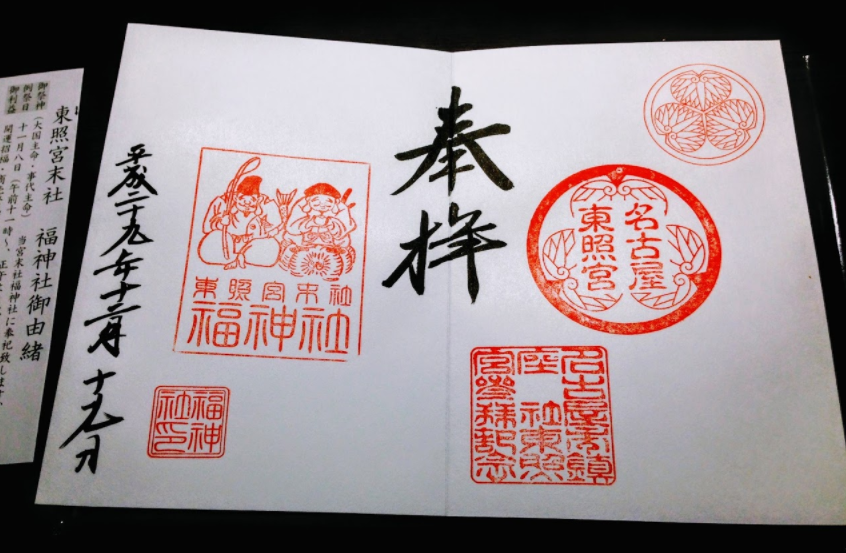 奉拝
名古屋
東照宮
名古屋東鎮
座 社東照
宮参拝記念
東照宮末社
福神社
福神
社印
平成二十九年十二月十九日
東照宮末社 福神社御由緒
御祭神 (大国主命・事代主命) 当宮末社福神社に奉祀致します。
例祭日 十一月八日(午前十一時)
御利益 開運招福